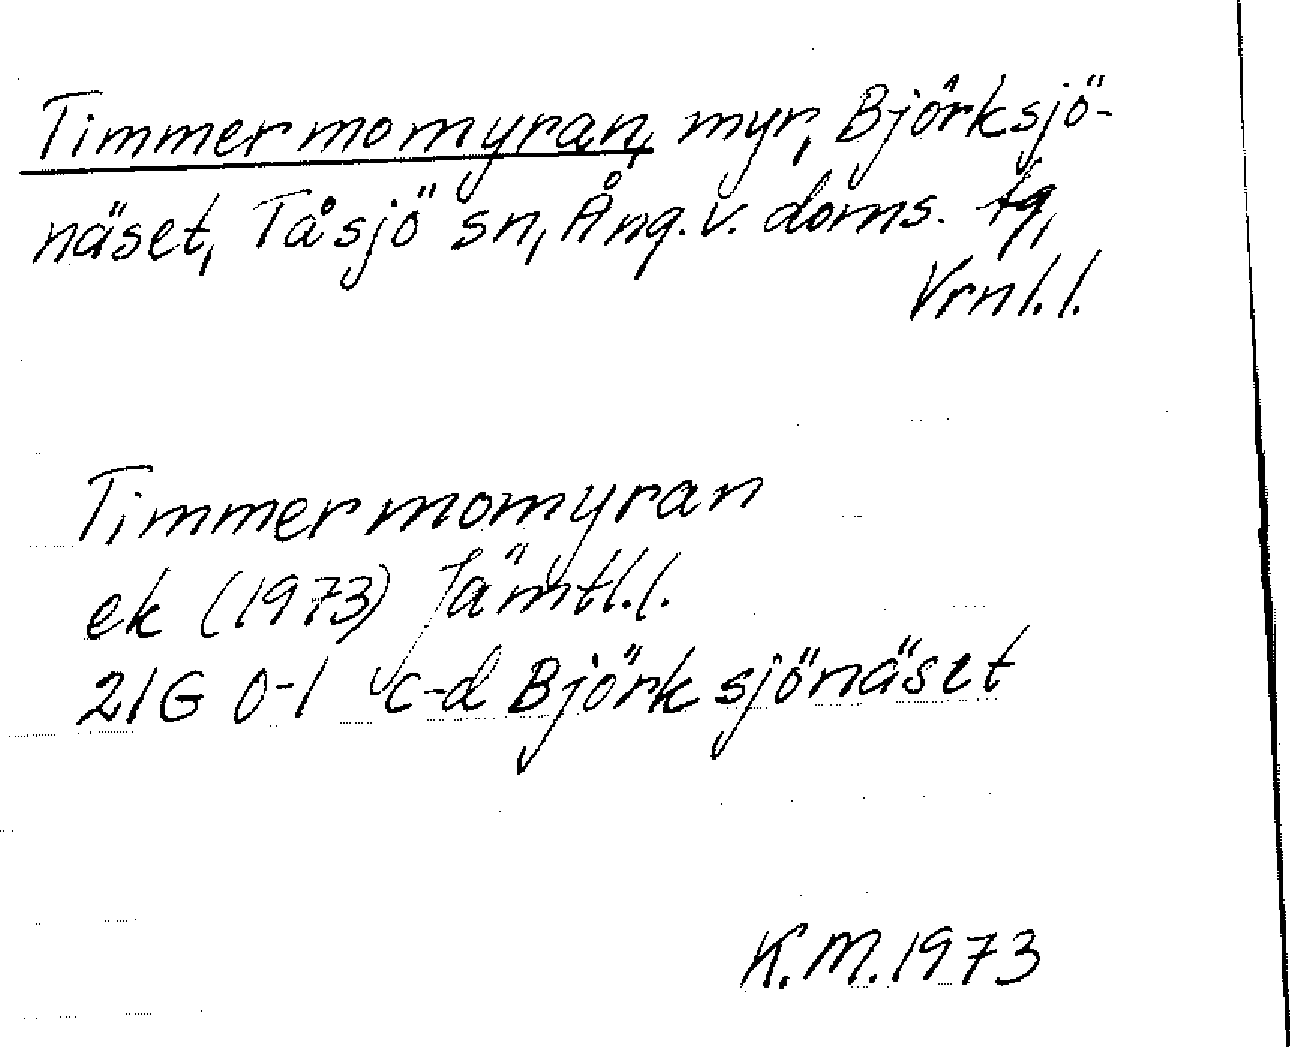 Timmermomyran, myr, Björksjö-
näset, Tåsjö sn, Ång. v. doms. tg,
Vrnl. l.
Timmermomyran
ek (1973) Jämtl. l.
21G 0-1 c-d Björksjönäset
K. M. 1973